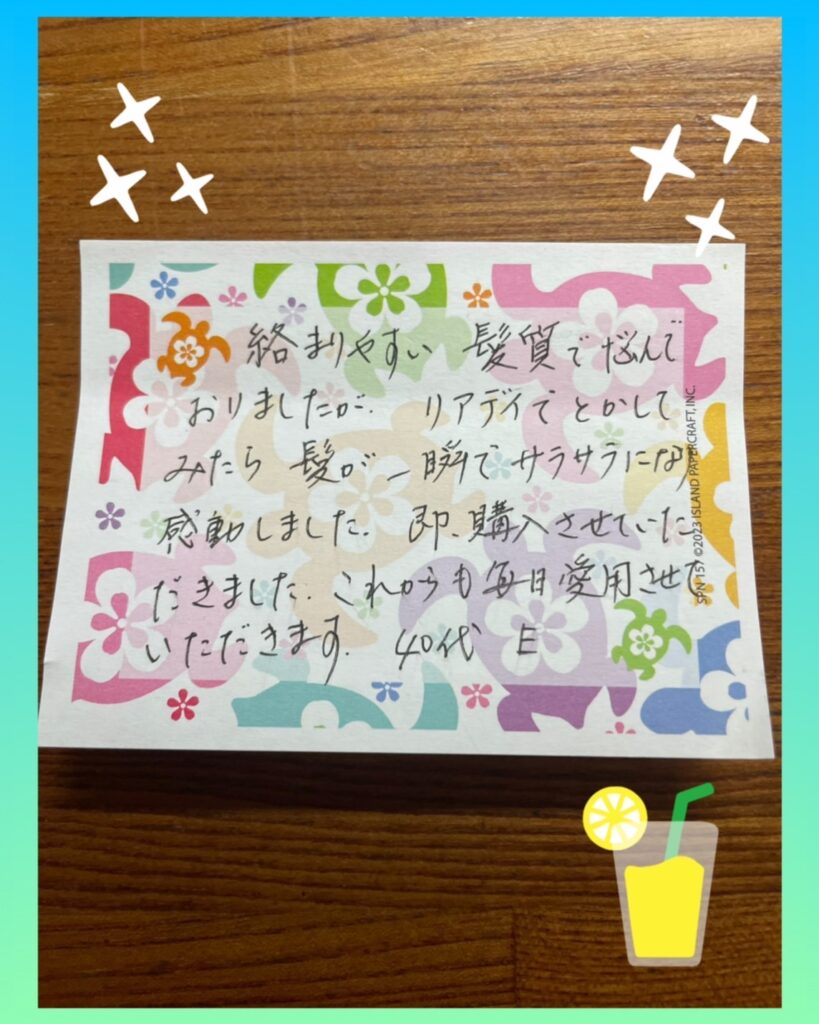 絡まりやすい 髪質で悩んで
おりましたが、 リアデイでとかして
みたら 髪が一瞬でサラサラになり
感動しました。 即、購入させていた
だきました。これからも毎日愛用させて
いただきます。 40代 E
SPN 157 ©2023 ISLAND PAPERCRAFT, INC.